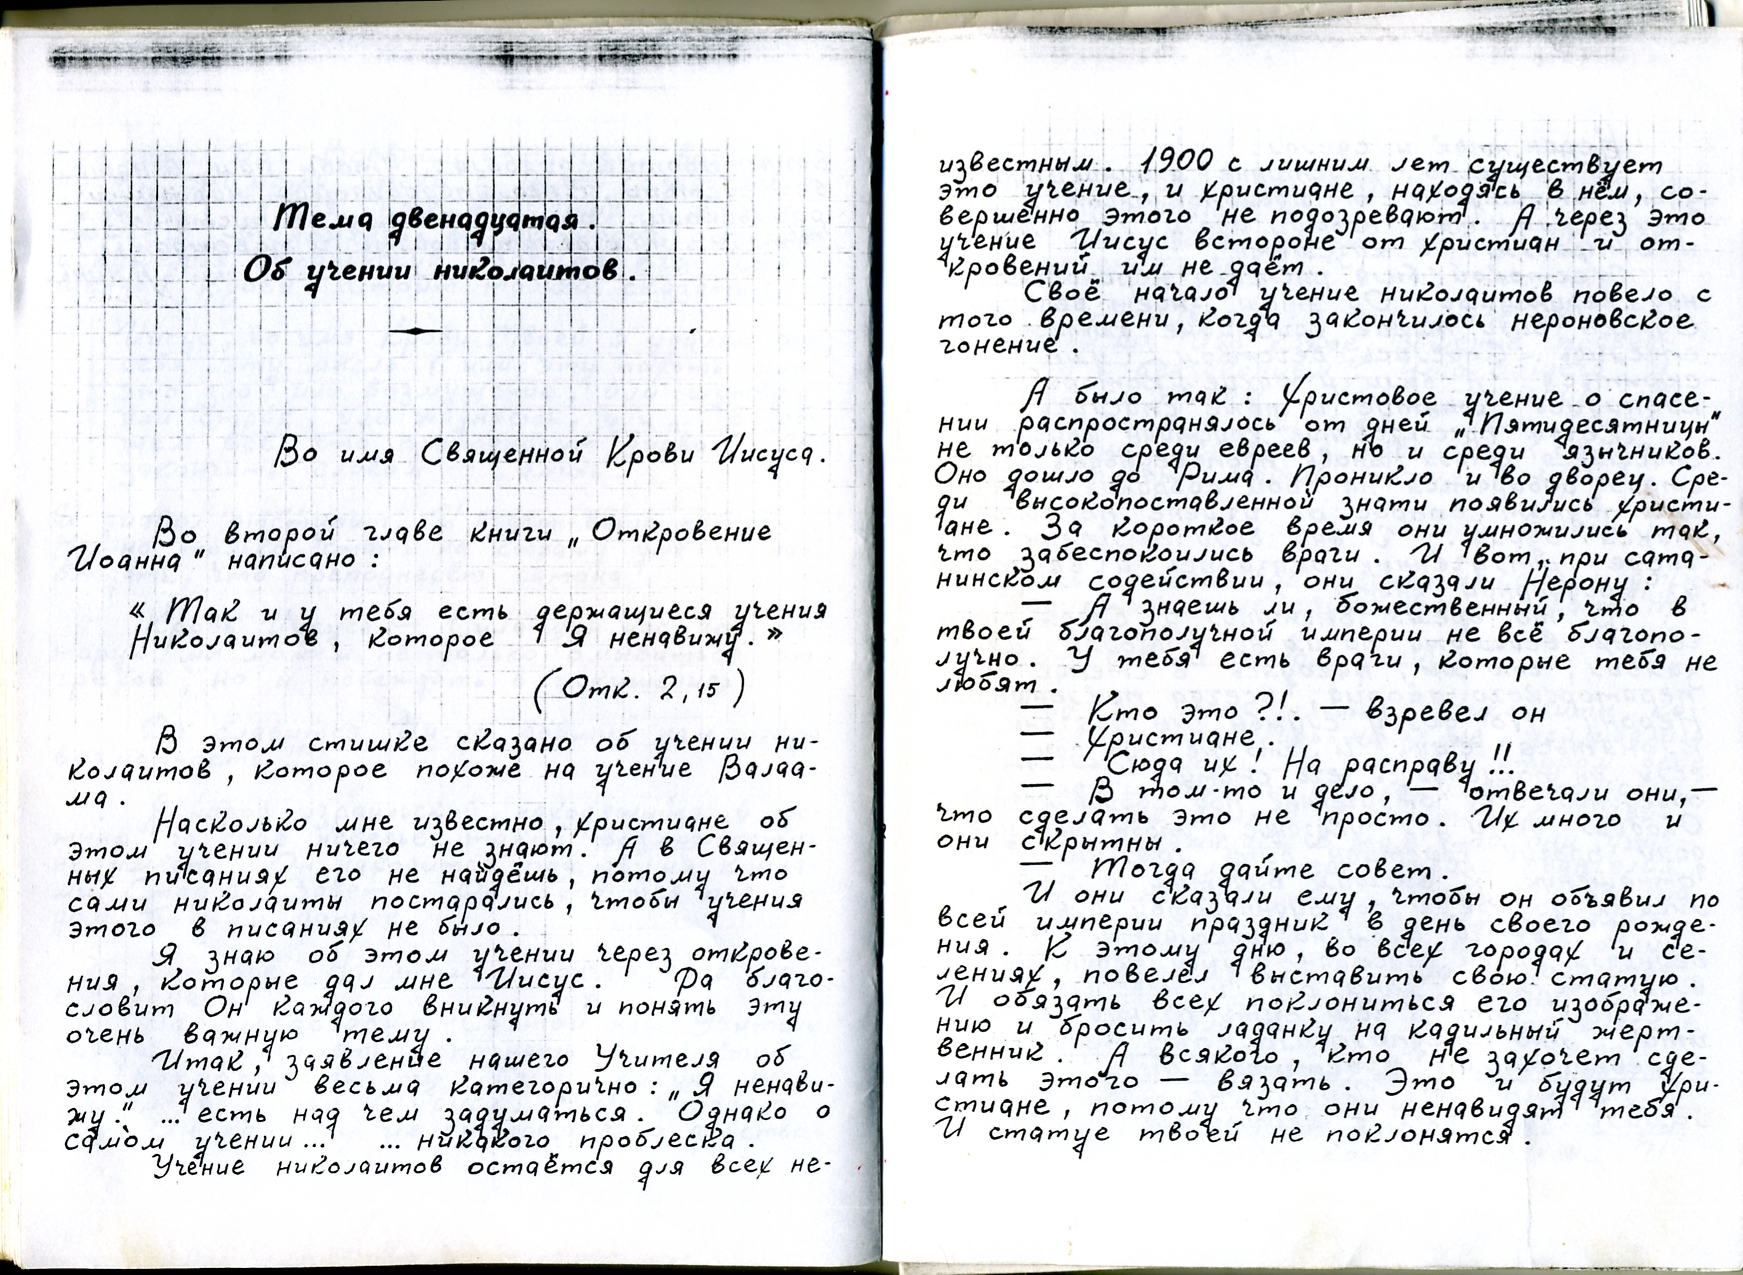 Тема двенадцатая.
Об учении николаитов.
Во имя Священной Крови Иисуса.
Во второй главе книги „Откровение
Иоанна" написано:
« Так и у тебя есть держащиеся учения
Николаитов, которое Я ненавижу.»
(Отк. 2,15)
В этом стишке сказано об учении ни-
колаитов, которое похоже на учение Валаа-
ма.
Насколько мне известно, христиане об
этом учении ничего не знают. А в Священ-
ных писаниях его не найдёшь, потому что
сами николаиты постарались, чтобы учения
этого в писаниях не было.
Я знаю об этом учении через открове-
ния, которые дал мне Иисус. Да благо-
словит Он каждого вникнуть и понять эту
очень важную тему.
Итак, заявление нашего Учителя об
этом учении весьма категорично: „Я ненави-
жу." ... есть над чем задуматься. Однако о
самом учении... ... никакого проблеска.
Учение николаитов остаётся для всех не-
известным. 1900 с лишним лет существует
это учение, и христиане, находясь в нём, со-
вершенно этого не подозревают. А через это
учение Иисус встороне от христиан и от-
кровений им не даёт.
Своё начало учение николаитов повело с
того времени, когда закончилось нероновское
гонение.
А было так: Христовое учение о спасе-
нии распространялось от дней „Пятидесятницы"
не только среди евреев, но и среди язычников.
Оно дошло до Рима. Проникло и во дворец. Сре-
ди высокопоставленной знати появились христи-
ане. За короткое время они умножились так,
что забеспокоились враги. И вот, при сата-
нинском содействии, они сказали Нерону:
— А знаешь ли, божественный, что в
твоей благополучной империи не всё благопо-
лучно. У тебя есть враги, которые тебя не
любят.
— Кто это ?!. — взревел он
— Христиане.
— Сюда их! На расправу!!!
— В том-то и дело, — отвечали они,—
что сделать это не просто. Их много и
они скрытны.
— Тогда дайте совет.
И они сказали ему, чтобы он объявил по
всей империи праздник в день своего рожде-
ния. К этому дню, во всех городах и се-
лениях, повелел выставить свою статую.
И обязать всех поклониться его изображе-
нию и бросить ладанку на кадильный жерт-
венник. А всякого, кто не захочет сде-
лать этого — вязать. Это и будут хри-
стиане, потому что они ненавидят тебя.
И статуе твоей не поклонятся.